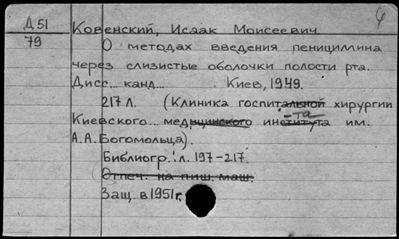 Д 51 Ковенский, Исаак Моисеевич
79 О методах введения пенициллина
через слизистые оболочки полости рта.
Дисс... канд... Киев, 1949.
217 л. (Клиника госпитальной хирургии
-та
Киевского... медицинского института им.
А.А. Богомольца).
Библиогр.: л. 197-217.
Отпеч. на пиш. маш.
Защ. в 1951 г.